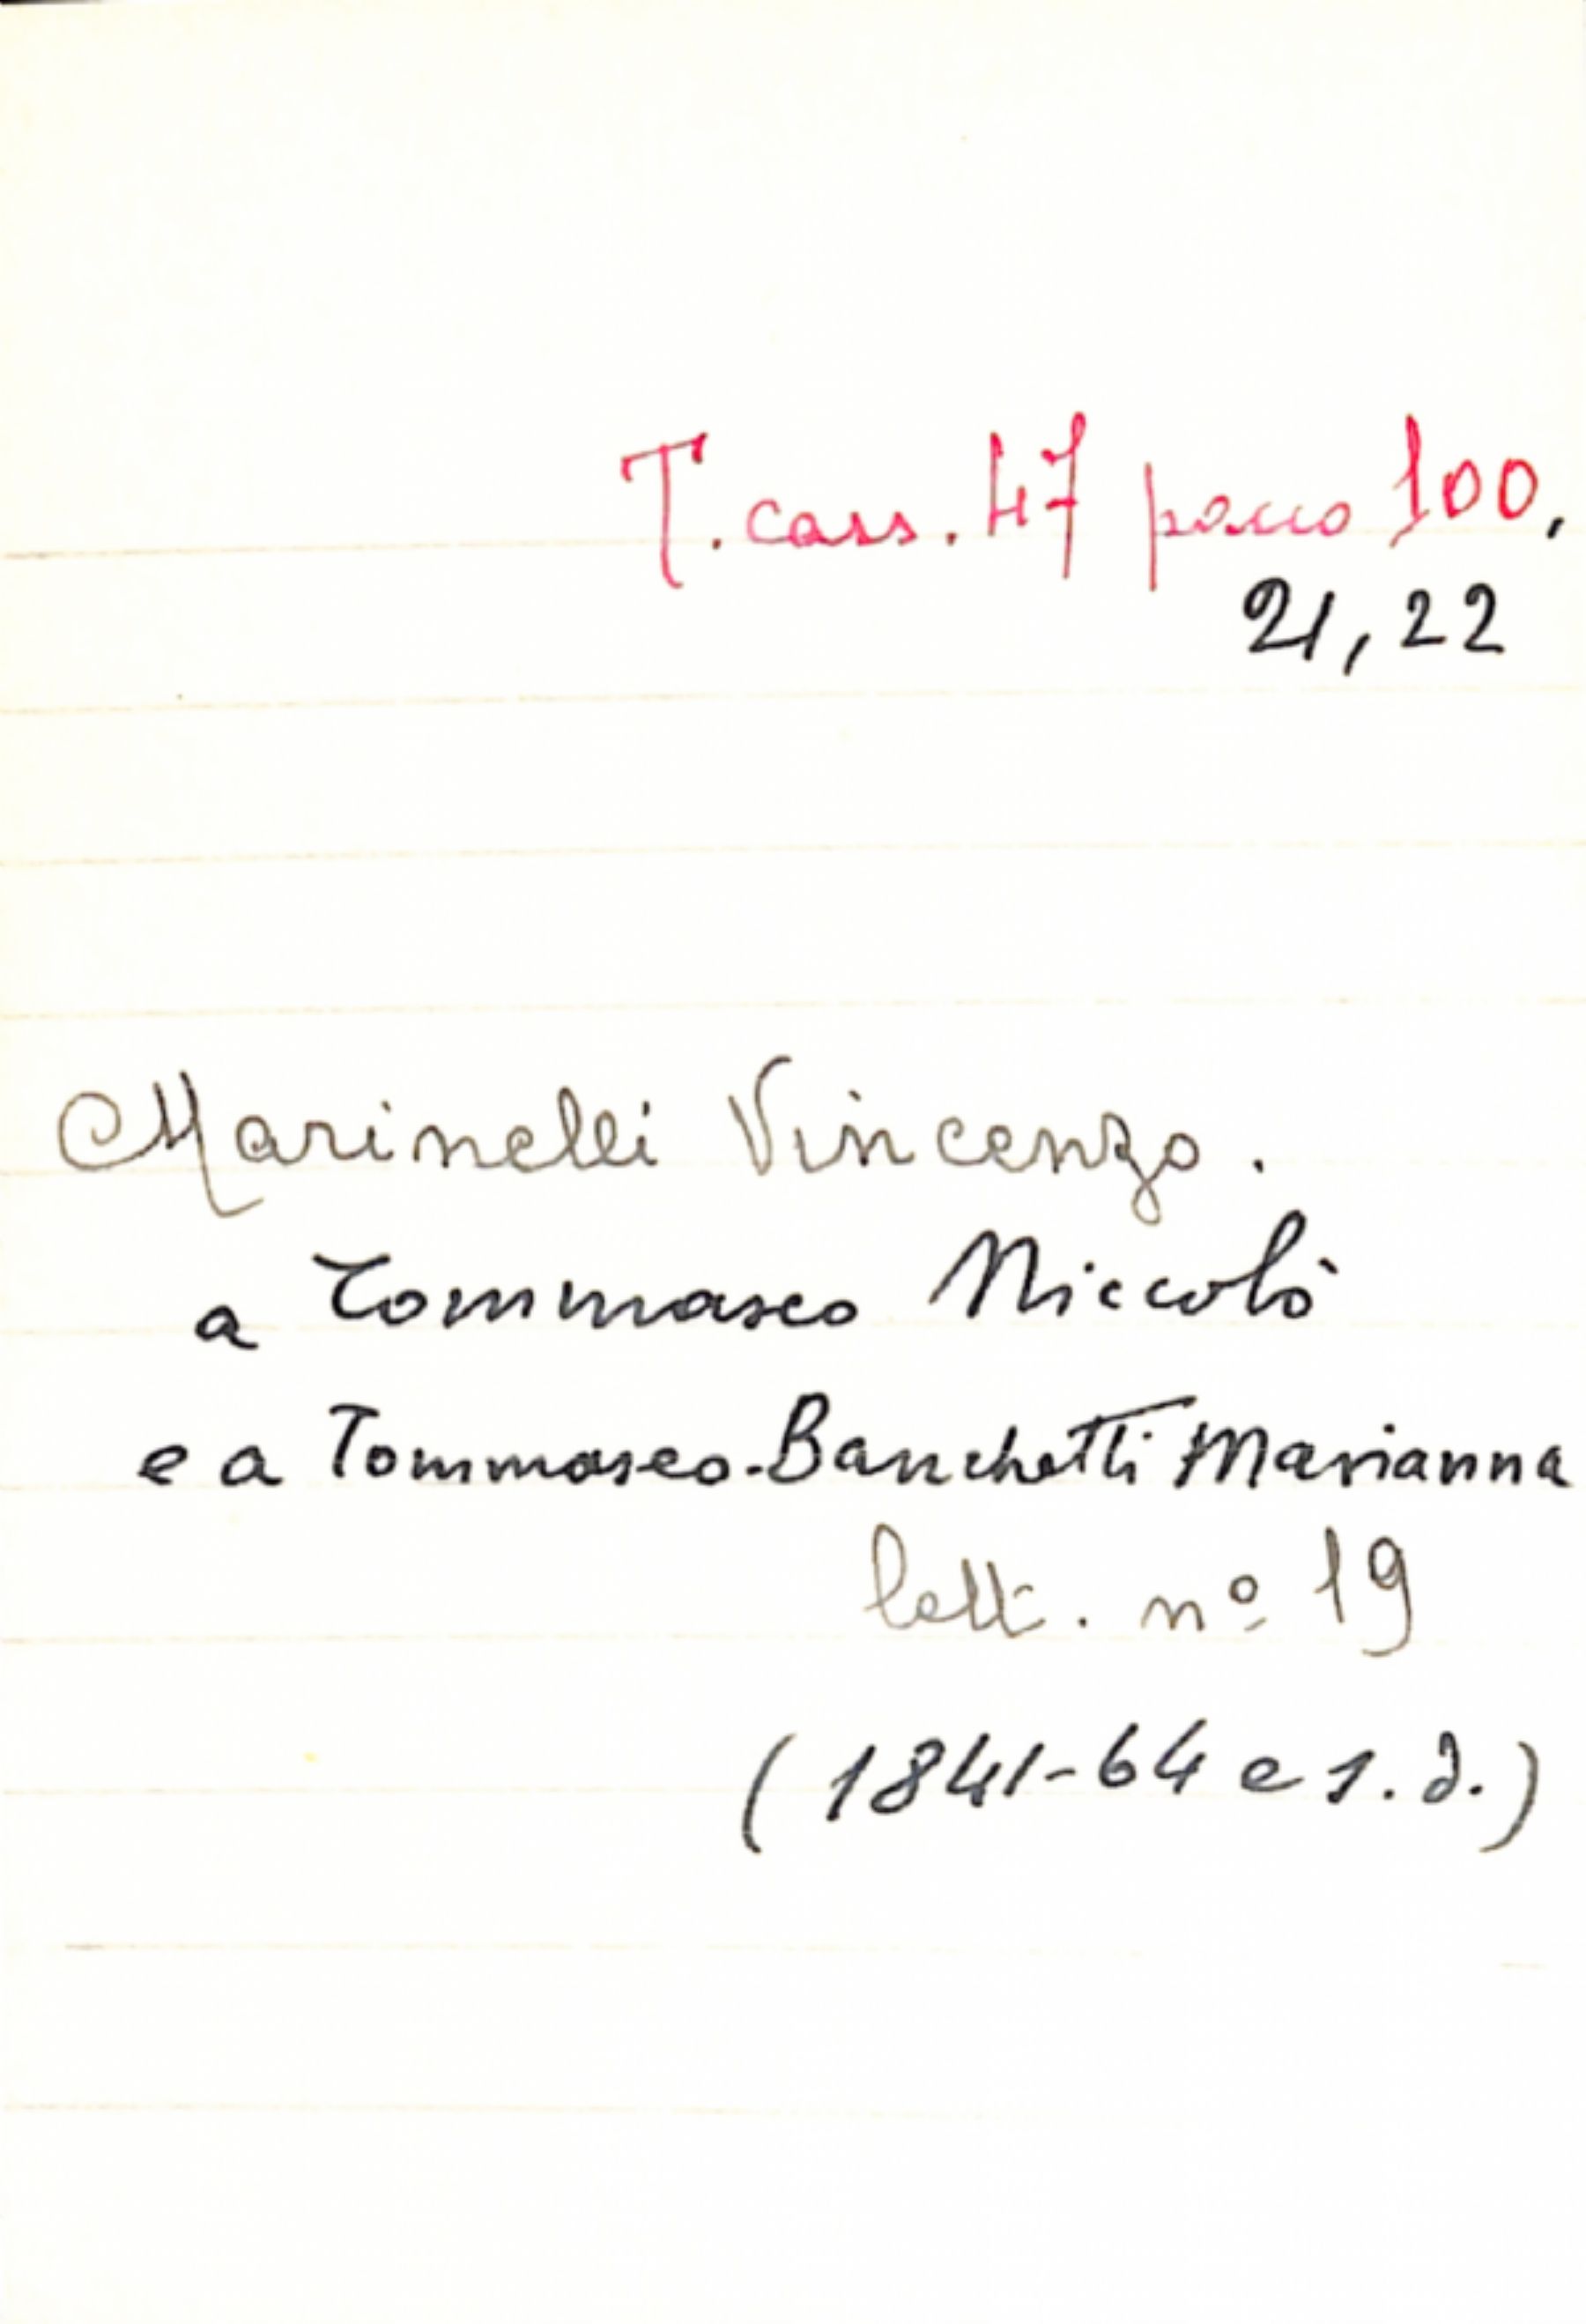 T. cass. 47 pacco 100,
21, 22
Marinelli Vincenzo.
a Tommaseo Niccolò
e a Tommaseo-Banchetti Marianna
lett. nº 19
(1841-64 e s.d.)